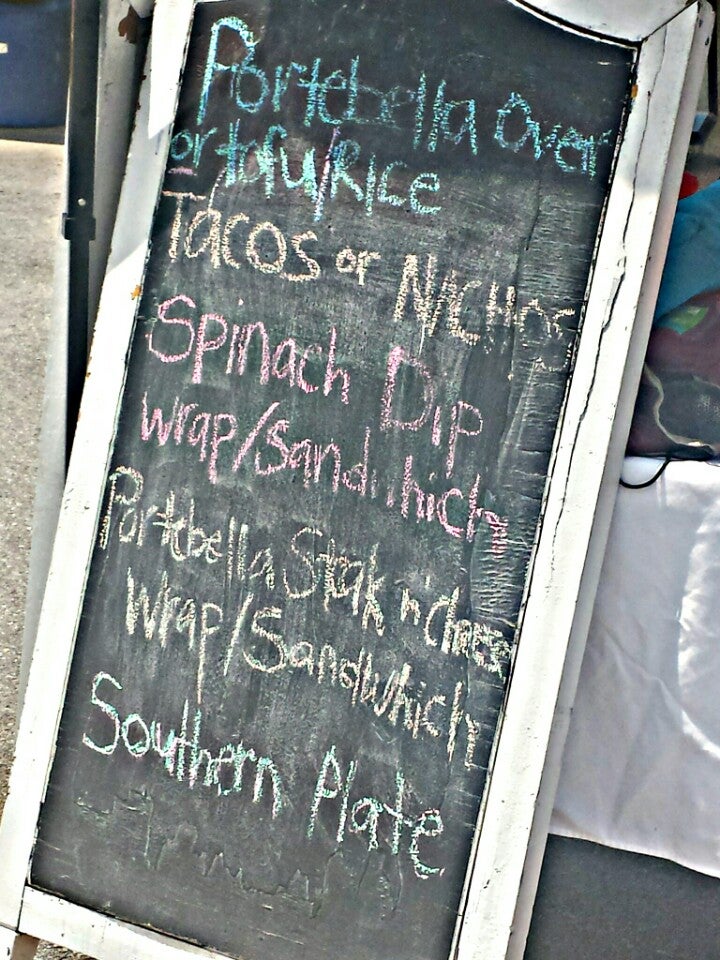 Portebella Over
or tofu/Rice
Tacos or NACHOS
Spinach Dip
Wrap/Sandwhich
Portebella Steak n' Cheese
Wrap/Sandwhich
Southern Plate